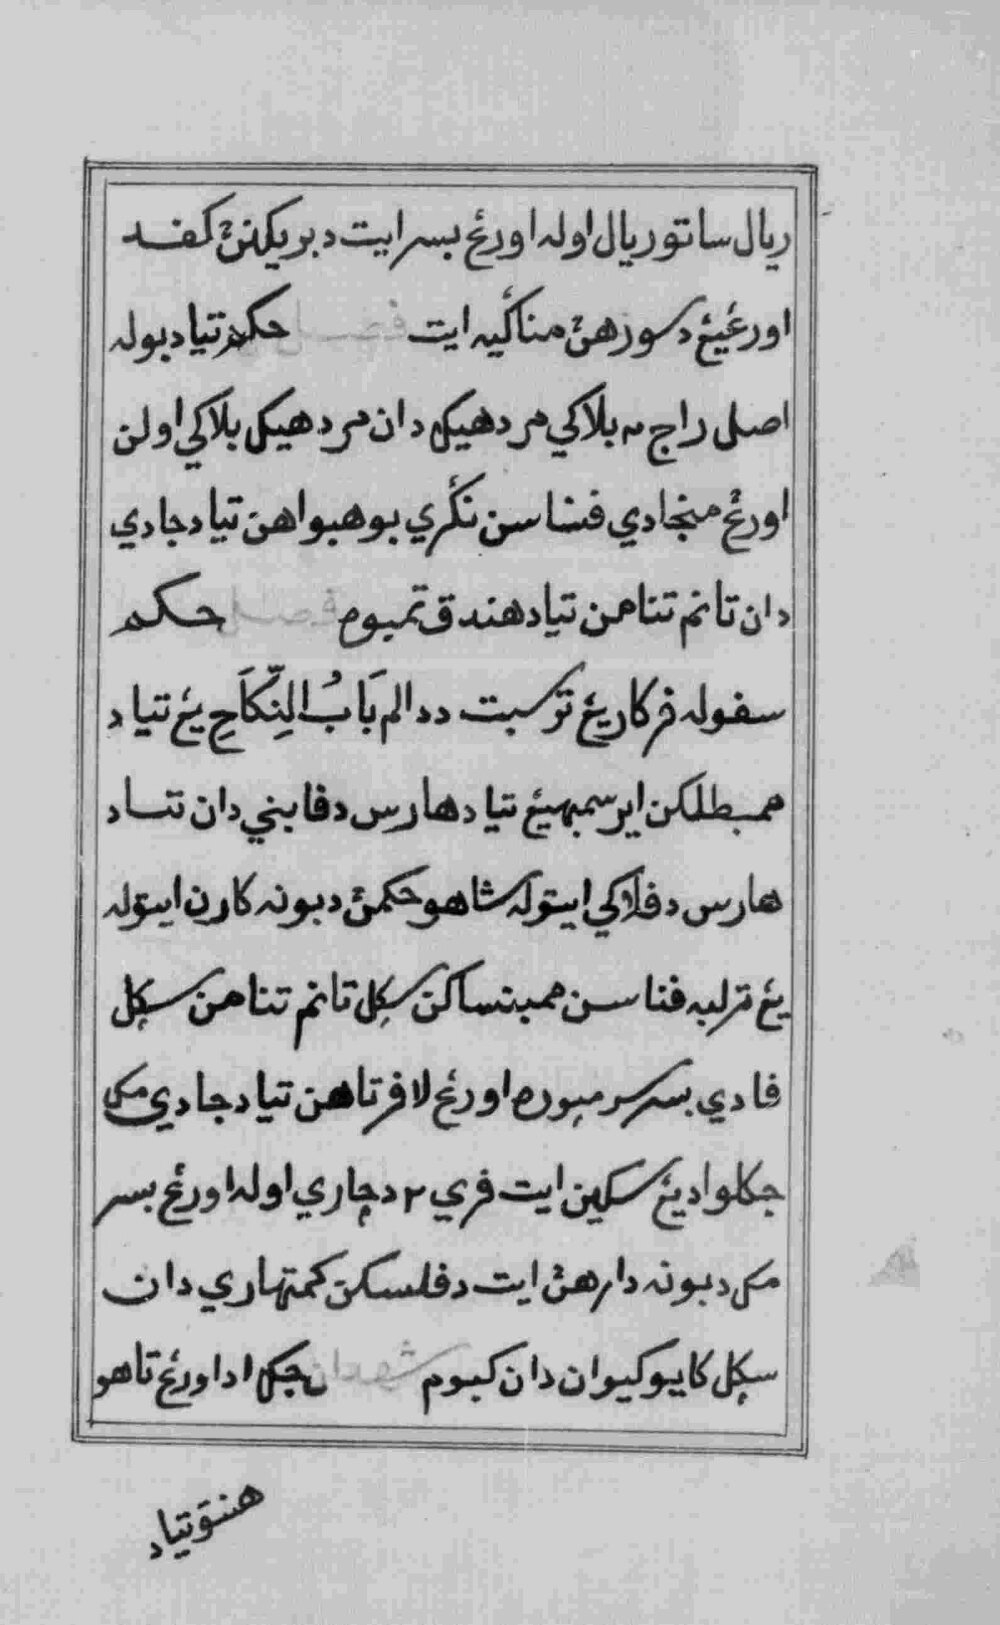 ريال ساتو ريال اوله اورڠ بسر ايت دبريکنڽ کفد
اورڠيڠ دسورهڽ مناڬيه ايت فصل حکم تياد بوله
اصل راج٢ بلاکي مردهيک دان مردهيک بلاکي اولن
اورڠ منجادي فنناسن نڬري بوهبواهن تياد جادي
دان تانم تنامن تياد هندق تمبوم فصل حکم
سفوله فرکاريڠ ترسبت ددالم بَابُ النِّكَاحِ يڠ تياد
ممبطلکن اير سمبهيڠ تياد هارس دفابني دان تتاد
هارس دفلاکي ايتوله شاهو حکمڽ دبونه کارن ايتوله
يڠ ترلبه فناسن ممبنساکن سݢل تانم تنامن سݢل
فادي بسر سرمبوره اورڠ لافر تاهن تياد جادي مک
جکلو اديڠ سکين ايت فري٢ دچاري اوله اورڠ بسر
مک دبونه دارهڽ ايت دفلسکن کمتهاري دان
سݢل کايو کيوان دان کبوم شهدان جک اد اورڠ تاهو
هنتو تياد